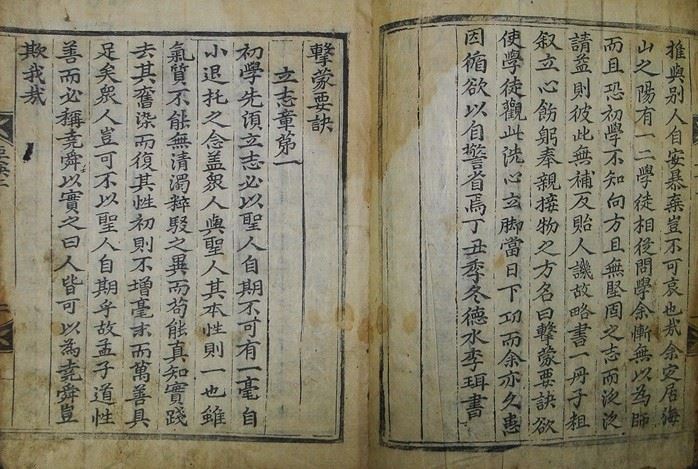 推與別人自安暴棄豈不可哀也哉余定居海
山之陽有一二學徒相從問學余慚無以為師
而且恐初學不知向方且無堅固之志而泛泛
請益則彼此無補反貽人譏故略書一冊子粗
叙立心飭躬奉親接物之方名曰擊蒙要訣欲
使學徒觀此洗心立脚當日下功而余亦久患
因循欲以自警省焉丁丑季冬德水李珥書
擊蒙要訣
立志章第一
初學先須立志必以聖人自期不可有一毫自
小退托之念盖衆人與聖人其本性則一也雖
氣質不能無清濁粹駁之異而苟能真知實踐
去其舊染而復其性初則不增毫末而萬善具
足矣衆人豈可不以聖人自期乎故孟子道性
善而必稱堯舜以實之曰人皆可以為堯舜豈
欺我哉